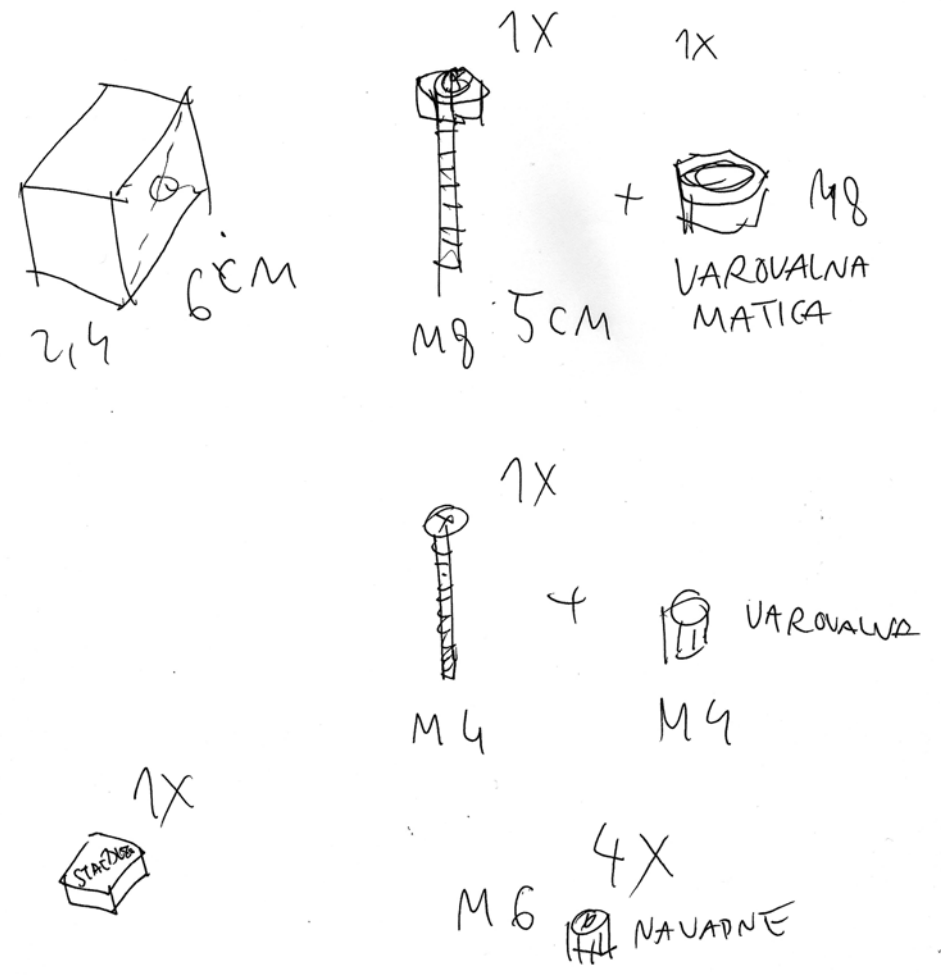 1X
1X
6 CM
2,4
M8 5 CM
M8
VAROVALNA
MATICA
1X
VAROVALNA
M4
M4
1X
4X
M6
NAVADNE